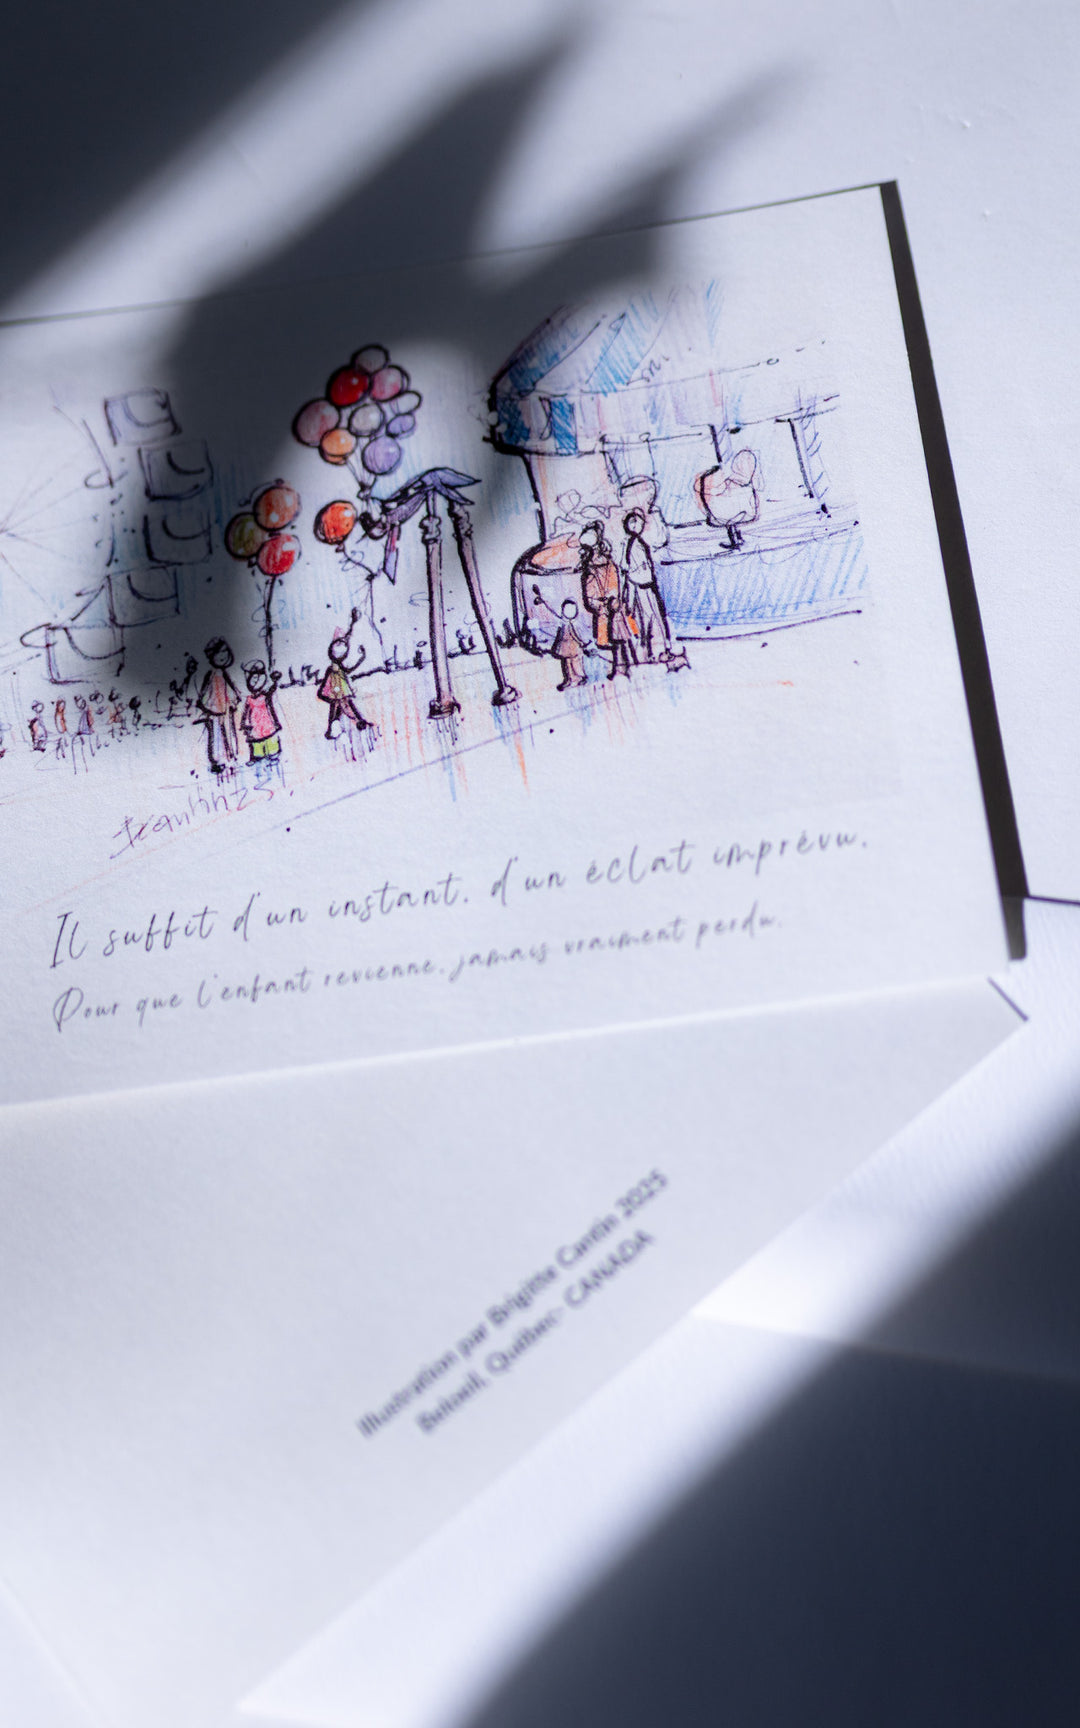 Il suffit d'un instant, d'un éclat imprévu,
Pour que l'enfant revienne, jamais vraiment perdu.
Illustration par Brigitte Cantin 2025
Beloeil, Québec- CANADA